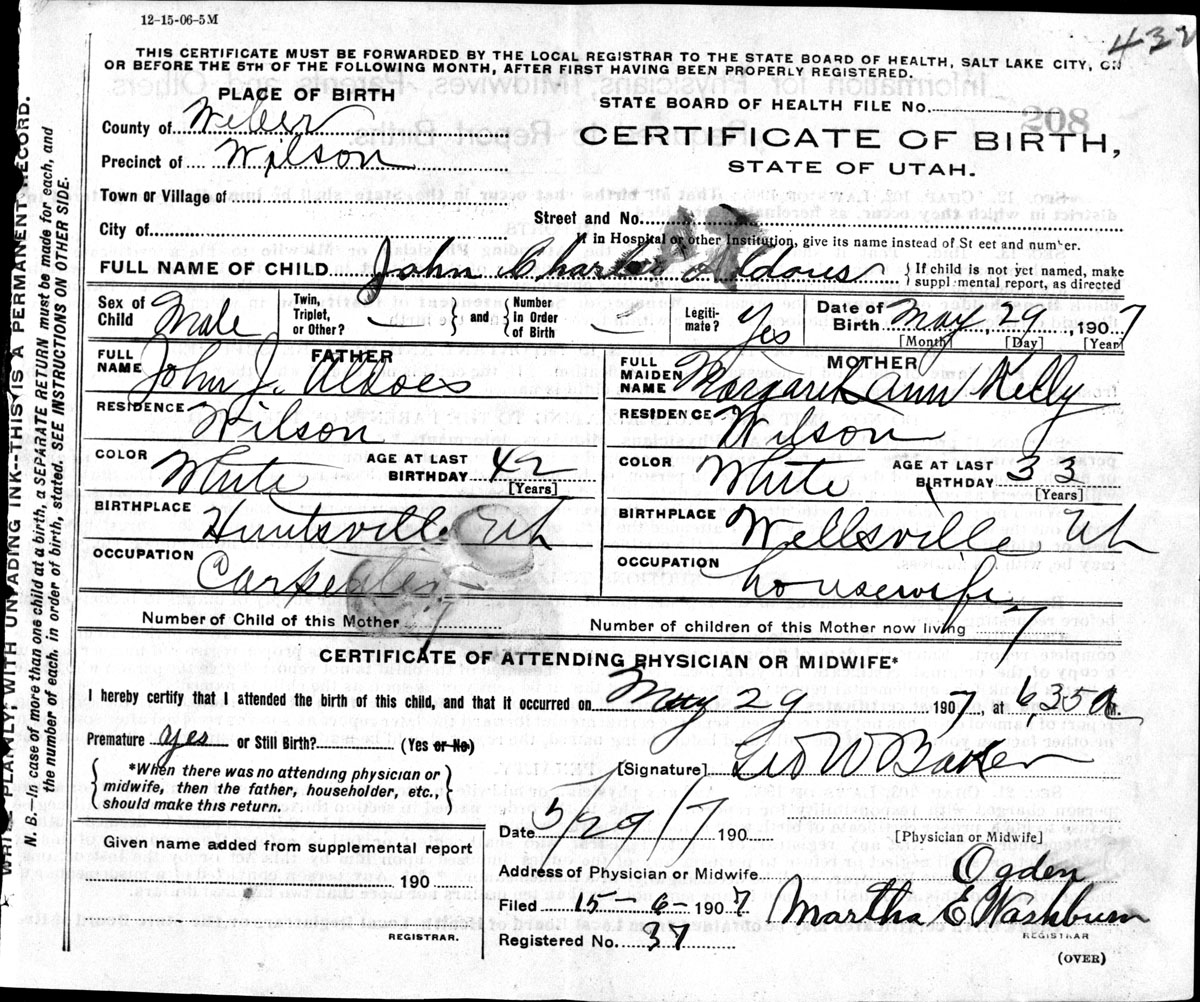 12-15-06-5M
432
THIS CERTIFICATE MUST BE FORWARDED BY THE LOCAL REGISTRAR TO THE STATE BOARD OF HEALTH, SALT LAKE CITY, ON
OR BEFORE THE 5TH OF THE FOLLOWING MONTH, AFTER FIRST HAVING BEEN PROPERLY REGISTERED.
PLACE OF BIRTH
STATE BOARD OF HEALTH FILE No.
208
County of Weber
CERTIFICATE OF BIRTH,
Precinct of Wilson
STATE OF UTAH.
Town or Village of
Street and No.
City of
If in Hospital or other Institution, give its name instead of St eet and number.
FULL NAME OF CHILD John Charles Aldous
If child is not yet named, make
suppl mental report, as directed
Sex of Child Male Twin, Triplet, or Other? and Number in Order of Birth Legiti-mate? Yes Date of Birth May, 29, 1907
[Month] [Day] [Year]
FATHER MOTHER
FULL NAME John J. Aldoes FULL MAIDEN NAME Margaret Ann Kelly
RESIDENCE Wilson RESIDENCE Wilson
COLOR White AGE AT LAST BIRTHDAY 42 [Years] COLOR White AGE AT LAST BIRTHDAY 33 [Years]
BIRTHPLACE Huntsville Uth BIRTHPLACE Wellsville Uth
OCCUPATION Carpenter OCCUPATION housewife
Number of Child of this Mother 7 Number of children of this Mother now living 7
CERTIFICATE OF ATTENDING PHYSICIAN OR MIDWIFE*
I hereby certify that I attended the birth of this child, and that it occurred on May 29 1907, at 6,35 a M.
Premature yes or Still Birth? (Yes or No)
*When there was no attending physician or
midwife, then the father, householder, etc.,
should make this return.
[Signature] Leo W Baker
Date 5/29/7 190
[Physician or Midwife]
Given name added from supplemental report
190
REGISTRAR.
Address of Physician or Midwife Ogden
Filed 15-6-1907 Martha E. Washburn
REGISTRAR
Registered No. 37
(OVER)
WRITE PLAINLY, WITH UNFADING INK--THIS IS A PERMANENT RECORD.
N. B.--In case of more than one child at a birth, a SEPARATE RETURN must be made for each, and
the number of each. in order of birth, stated. SEE INSTRUCTIONS ON OTHER SIDE.